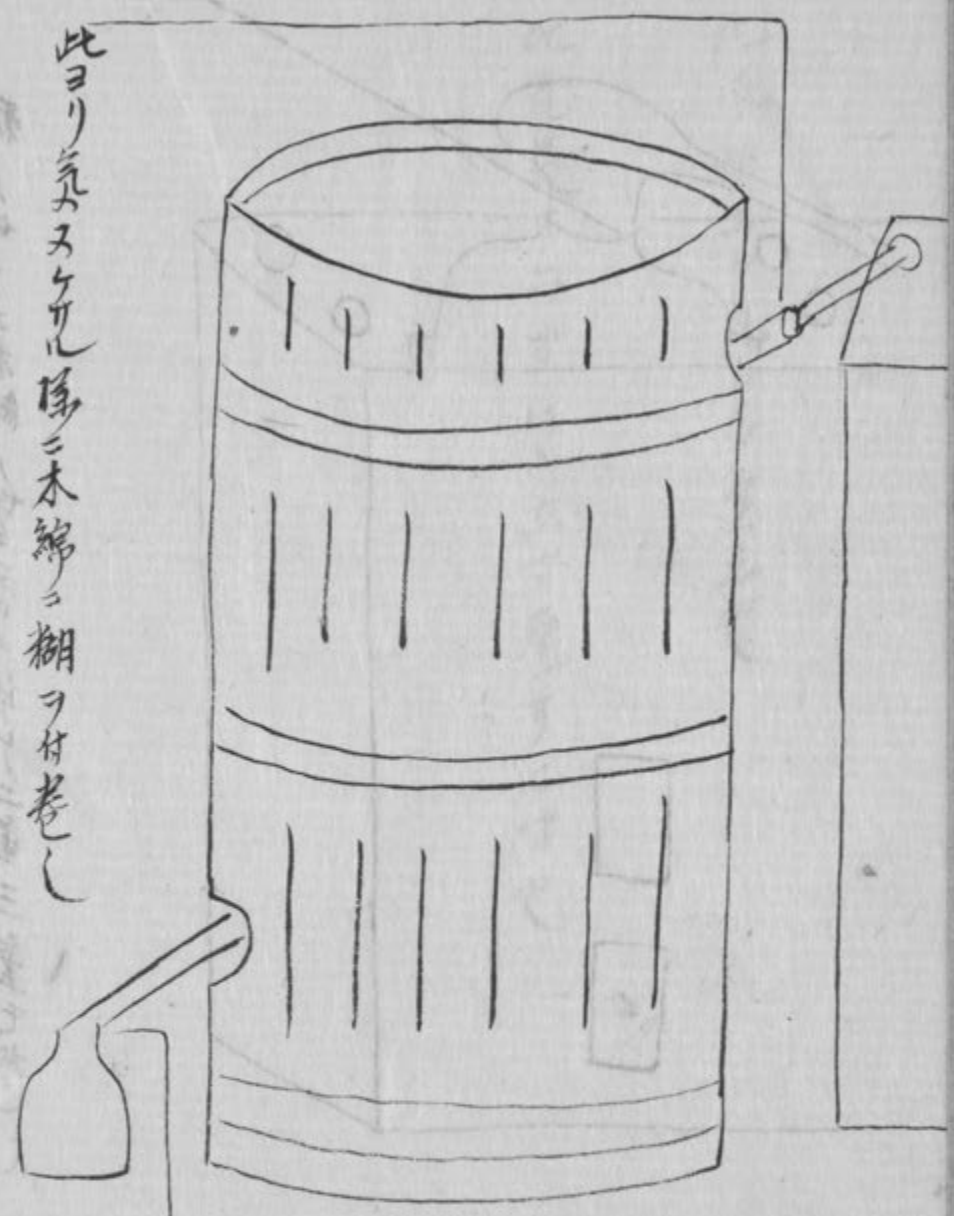 此ヨリ気ヌケザル様ニ木綿ニ糊ヲ付巻し